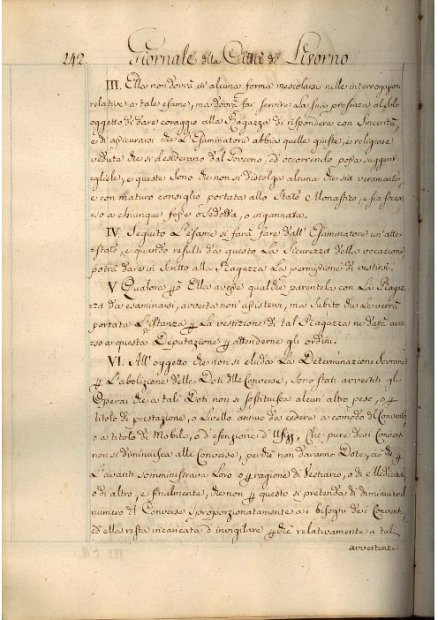 242 Giornale della Città di Livorno
III. Ella non dovrà in alcuna forma mescolarsi nelle interrogazioni
relative a tale esame, ma dovrà far servire la sua presenza al solo
oggetto di dare coraggio alla Ragazza di rispondere con sincerità,
e di assicurarsi che l'Esaminatore abbia quelle giuste, e religiose
vedute che si desiderano dal Governo, ed occorrendo possa suggerir
gliele; e queste sono che non si distolga alcuna che sia veramente,
e con maturo consiglio portata allo Stato e Monastico, e sia
a chiunque fosse o sedotta, o ingannata.
IV. Seguito l'esame si farà fare dall'Esaminatore un atte-
stato, e quando resulti da questo la sicurezza della vocazione
potrà dare in scritto alla Ragazza la permissione di vestirsi.
V Qualora però Ella avesse qualche parentela con la Ragaz
za da esaminarsi, avverta non assistervi, ma subito che le verrà
portata l'Istanza per la vestizione di tal Ragazza ne darà avvi
so a questa Deputazione per attenderne gli ordini.
VI. All'oggetto che non si eluda la Determinazione Sovrana
per l'abolizione delle Doti delle Converse, sono stati avvertiti gli
Operai che a tali Doti non si sostituisca alcun altro peso, o per
titolo di prestazione, o Livello annuo da cedere a comodo del Convento
o a titolo di Mobili, o d'esenzione d' Che pure dai Conventi
non si diminuisca alle Converse, perchè non daranno Dote, ciò che per
l'avanti somministrava loro o per ragione di Vestiario, o di Medicina
o di altro, e finalmente, che non per questo si pretenda di diminuire il
numero di Converse proporzionatamente ai bisogni dei Conventi,
ed ella resta incaricata d'invigilare perchè relativamente a tali
avvertenze